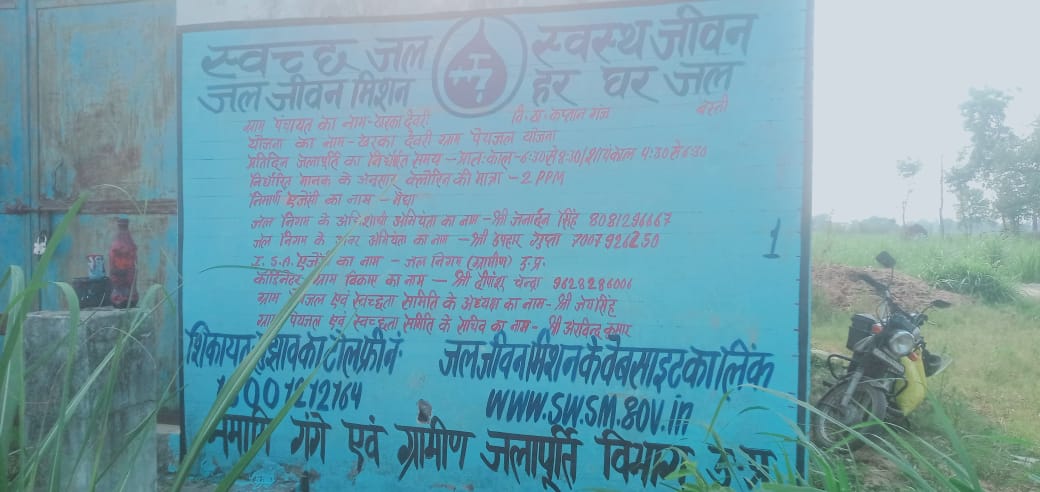 स्वच्छ जल स्वस्थ जीवन
जल जीवन मिशन हर घर जल
ग्राम पंचायत का नाम-खरका देवरी वि.ख.-कप्तान गंज बस्ती
योजना का नाम-खरका देवरी ग्राम पेयजल योजना
प्रतिदिन जलापूर्ति का निर्धारित समय-प्रातःकाल-6:30से8:30/शायंकाल 4:30से6:30
निर्धारित मानक के अनुसार क्लोरिन की मात्रा-2 PPM
निर्माण एजेंसी का नाम-मेघा
जल निगम के अधिशाषी अभियंता का नाम-श्री जनार्दन सिंह 8081296667
जल निगम के अभियंता का नाम-श्री उपहार गुप्ता 7007926250
I.S.A. एजेंसी का नाम-जल निगम (ग्रामीण) उ.प्र.
कोर्डिनेटर ग्राम विकास का नाम-श्री दीपांशु चन्द्रा 9628286006
ग्राम पेयजल एवं स्वच्छता समिति के अध्यक्ष का नाम-श्री जयसिंह
ग्राम पेयजल एवं स्वच्छता समिति के सचिव का नाम-श्री अरविन्द कुमार
1
शिकायत सुझाव का टोल फ्री नं. जल जीवन मिशन के वेबसाइट का लिंक
www.swsm.gov.in
नमामि गंगे एवं ग्रामीण जलापूर्ति विभाग उ.प्र.